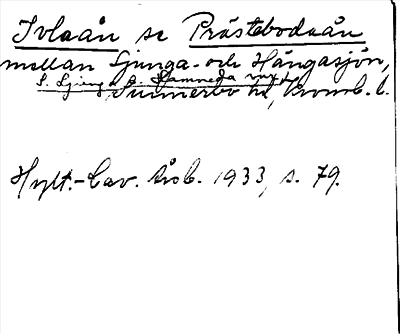 Ivlaån se Prästebodaån
mellan Ljunga- och Hängasjön,
S. Ljunga o. Hamneda
Sunnerbo hd, Kronob. l.
Hylt.-Cav. årsb. 1933, s. 79.